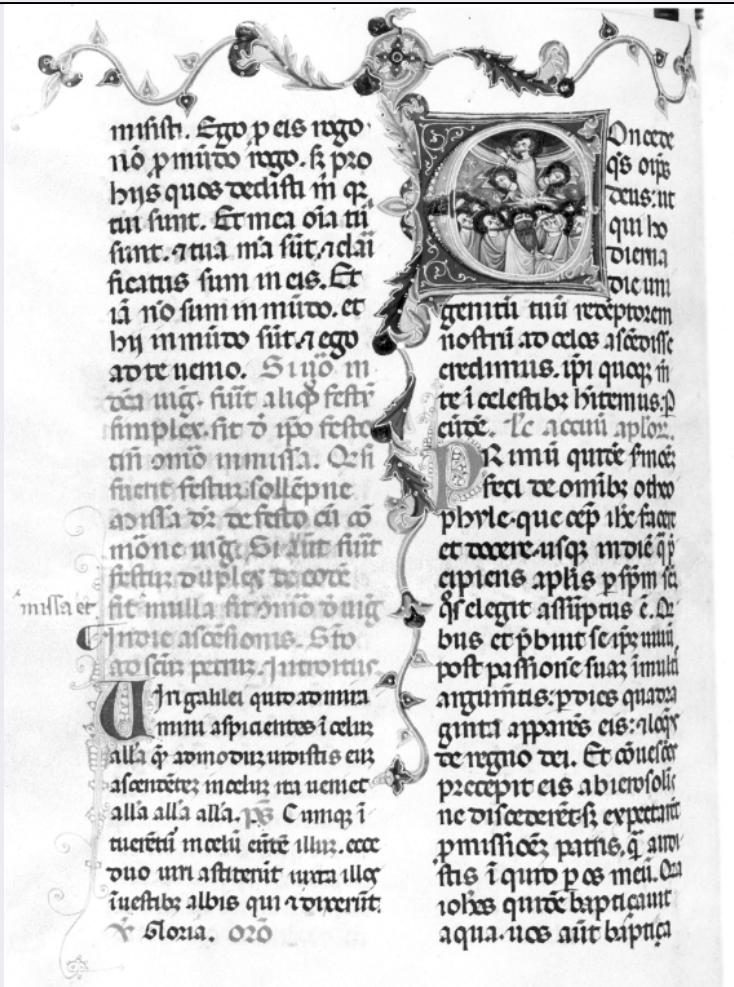 misisti. Ego p eis rogo
nō p mūdo rogo. sꝫ pro
hijs quos dedisti m̄ qꝛ
tui sunt. Et mea oīa tū
sunt. ⁊ tua mā sūt. ⁊ clari
ficatus sum in eis. Et
iā nō sum in mūdo. et
hij in mūdo sūt. ⁊ ego
ad te uenio. Si
uig. fūt aliqd festū
simplex. fit ipo festo
tm̄ ɔmō in missa.
fuerit festuꝫ sollēpne
missa dꝛ de festo cū cō
mōne uig. Si aūt fūit
festū duplex
missa et
fit nulla fit ɔmō uig
In die ascēsionis. Stō
ad scm̄ petrū. Introitus.
Uiri galilei quid admira
mini aspicientes ī celuꝫ
alla q̄ admoduꝫ uidistis euꝫ
ascendētē in celuꝫ ita ueniet
alla alla alla. ps̄ Cumqꝫ ī
tuerētur in celū eūtē illuꝫ. ecce
duo uiri astiterūt iuxta illos
ī uestibꝫ albis qui ⁊ dixerūt.
℣ Gloria. Orō
Concede
qs̄ oīps
deus: ut
qui ho
dierna
die uni
genitū tuū redēptorem
nostrū ad celos ascēdisse
credimus. ipi quoqꝫ m̄
te ī celestibꝫ hītemus. p
eūdē. Lc̄ actuū aploꝝ.
PRimū quidē smōeꝫ
feci de omībꝫ o theo
phyle. que cep̄ ihc̄ facere
et docere. usqꝫ in diē q̄ p̄
cipiens aplis p spm̄ sc̄
q̄s elegit assūptus ē. Qi
bus et p̄buit se ipꝫ uiuū
post passionē suaꝫ ī multi
argumētis: p dies quadra
ginta apparēs eis: ⁊ loqs
de regno dei. Et cōuescēs
precepit eis ab ierosoli
ne discederēt. sꝫ expectarēt
p̄missionēꝫ patris. q̄ audi
stis īquid p os meū. Qia
iohēs quidē baptiçauit
aqua. uos aūt baptiça